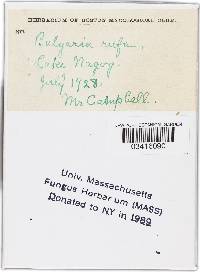 HERBARIUM OF BOSTON MYCOLOGICAL CLUB.
No.
Bulgaria rufa.
Lake Nagog.
July 1928.
Mr Campbell.
NEW YORK BOTANICAL GARDEN
03416090
Univ. Massachusetts
Fungus Herbarium (MASS)
Donated to NY in 1989